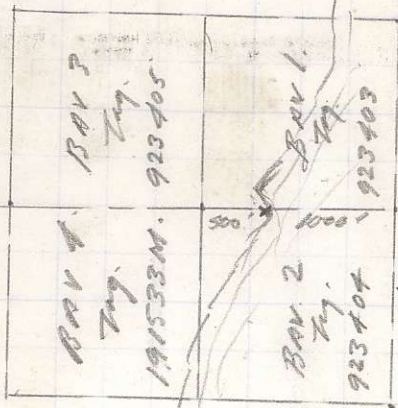 BAV 3
Tag.
923405
BAV 1.
Tag
923403
BAV 4.
Tag.
191533M.
500'
1000'
BAV 2
Tag.
923404